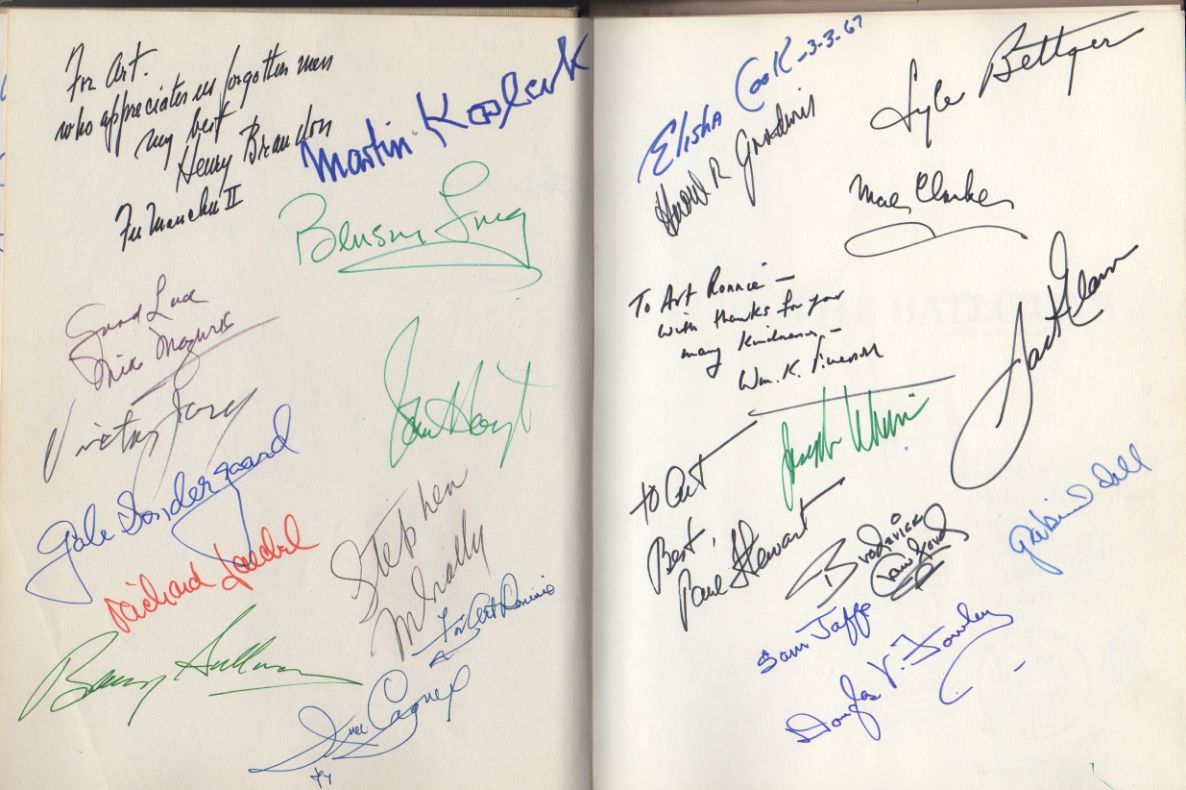 For Art.
who appreciates us forgotten men
my best
Henry Brandon
Fu Manchu II
Martin Kosleck
Benson Fong
Good Luck
Mike Mazurki
Victor Jory
John Hoyt
Gale Sondergaard
Richard Loedel
Stephen
McNally
Barry Sullivan
For Art Ronnie
Cagney
Elisha Cook - 3-3-67
Lyle Bettger
Harold R. Goodwin
Mae Clarke
To Art Ronnie –
with thanks for your
many kindnesses –
Wm. K. Everson
Jack Elam
Joseph Wiseman
To Art
Best,
Paul Stewart
Broderick
Crawford
Sam Jaffe
Douglas V. Fowley